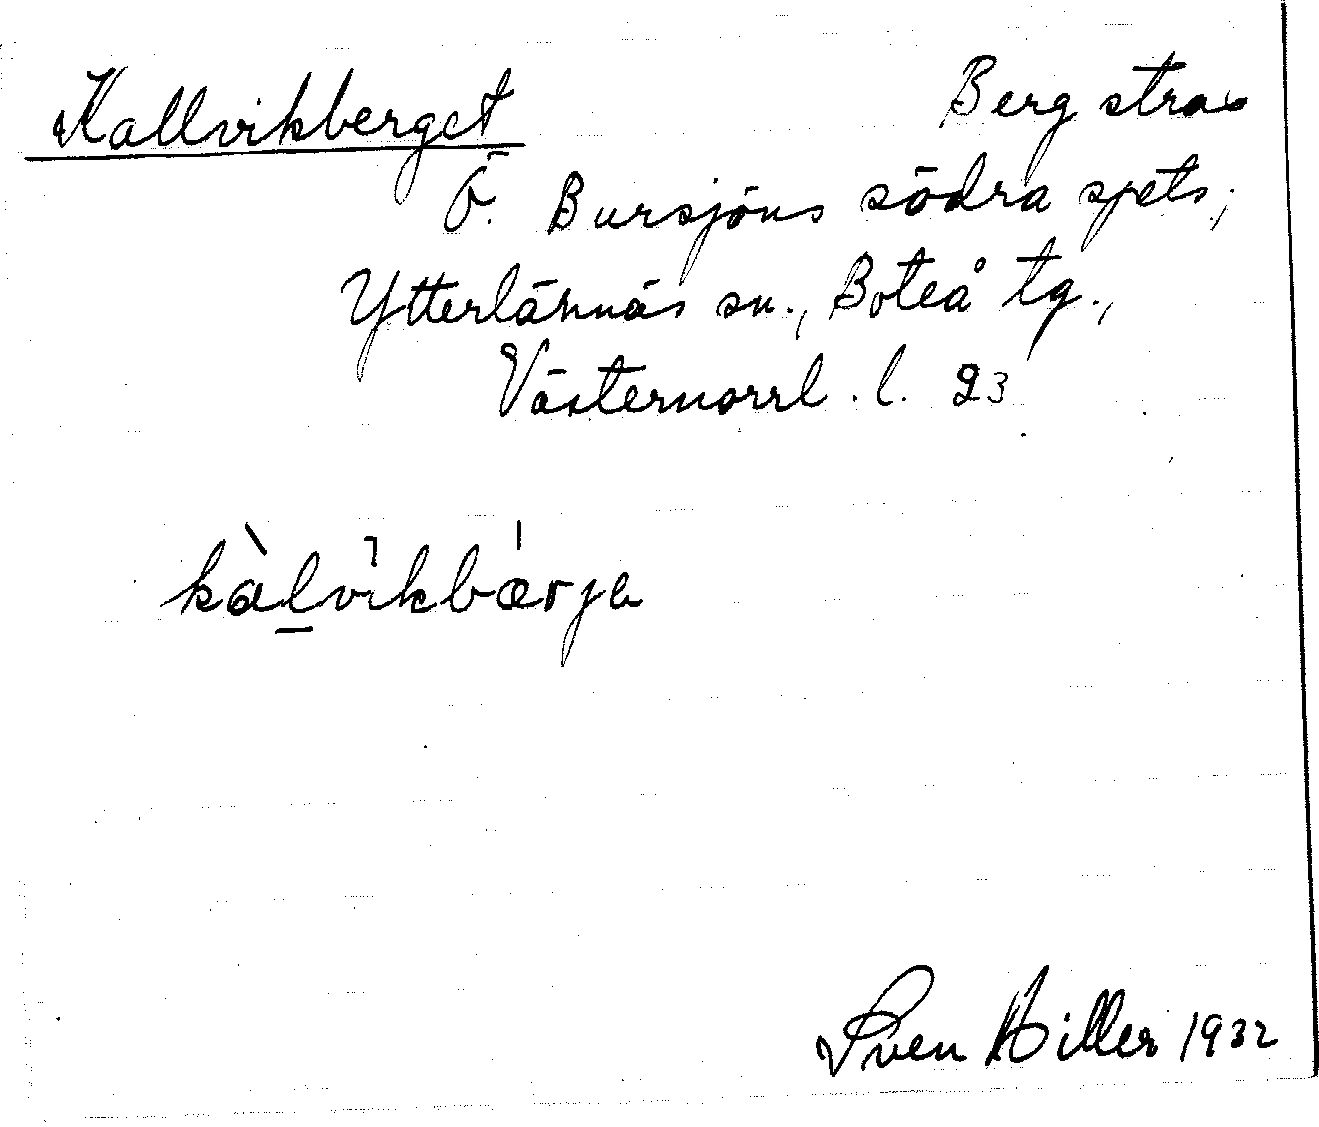 Kallvikberget
Berg strax
Ö. Bursjöns södra spets,
Ytterlännäs sn., Boteå tg.,
Västernorrl. l. 23
kàl̠vikbærjə
Sven Hiller 1932